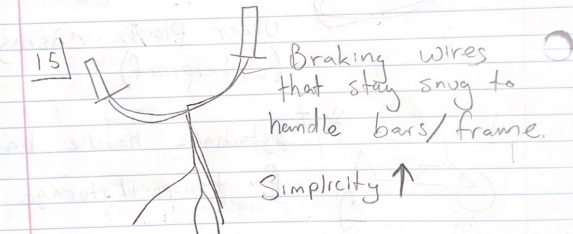 15
Braking wires
that stay snug to
handle bars/frame.
Simplicity ↑